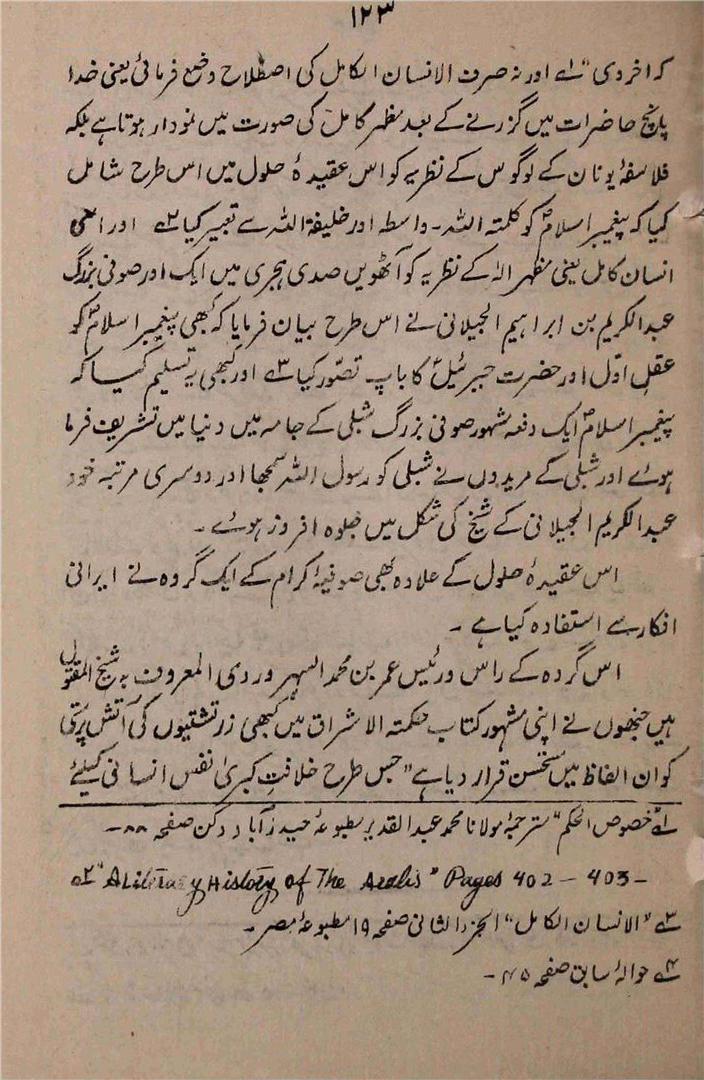 ۱۲۳
کہ اخروی“ ۱؎ اور نہ صرف الانسان الکامل کی اصطلاح وضع فرمائی یعنی خدا
پانچ حاضرات میں گزرنے کے بعد مظہر کامل کی صورت میں نمودار ہوتا ہے بلکہ
فلاسفۂ یونان کے لوگوس کے نظریہ کو اس عقیدۂ حلول میں اس طرح شامل
کیا کہ پیغمبر اسلامؐ کو کلمتہ اللہ۔ واسطہ اور خلیفۃ اللہ سے تعبیر کیا ۲؎ اور اسی
انسان کامل یعنی مظہر الہٰ کے نظریہ کو آٹھویں صدی ہجری میں ایک اور صوفی بزرگ
عبدالکریم بن ابراہیم الجیلانی نے اس طرح بیان فرمایا کہ کبھی پیغمبر اسلامؐ کو
عقل اوّل اور حضرت جبرئیلؑ کا باپ تصوّر کیا ۳؎ اور کبھی یہ تسلیم کیا کہ
پیغمبر اسلامؐ ایک دفعہ مشہور صوفی بزرگ شبلی کے جامہ میں دنیا میں تشریف فرما
ہوئے اور شبلی کے مریدوں نے شبلی کو رسول اللہ سمجھا اور دوسری مرتبہ خود
عبدالکریم الجیلانی کے شیخ کی شکل میں جلوہ افروز ہوئے۔
اس عقیدۂ حلول کے علاوہ بھی صوفیۂ کرام کے ایک گروہ نے ایرانی
افکار سے استفادہ کیا ہے۔
اس گروہ کے راس و رئیس عمر بن محمد السہروردی المعروف بہ شیخ المقتول
ہیں جنھوں نے اپنی مشہور کتاب حکمتہ الاشراق میں کبھی زرتشتیوں کی آتش پرستی
کو ان الفاظ میں مستحسن قرار دیا ہے ”جس طرح خلافتِ کبریٰ نفس انسانی کیلئے
۱؎ ”خصوص الحکم“ مترجمۂ مولانا محمد عبدالقدیر مطبوعۂ حیدرآباد دکن صفحہ ۸۸۔
۲؎ "A Literary History of The Arabs" Pages 402 – 403 –
۳؎ ”الانسان الکامل“ الجزء الثانی صفحہ ۱۹ مطبوعۂ مصر۔
۴؎ حوالۂ سابق صفحہ ۴۵۔